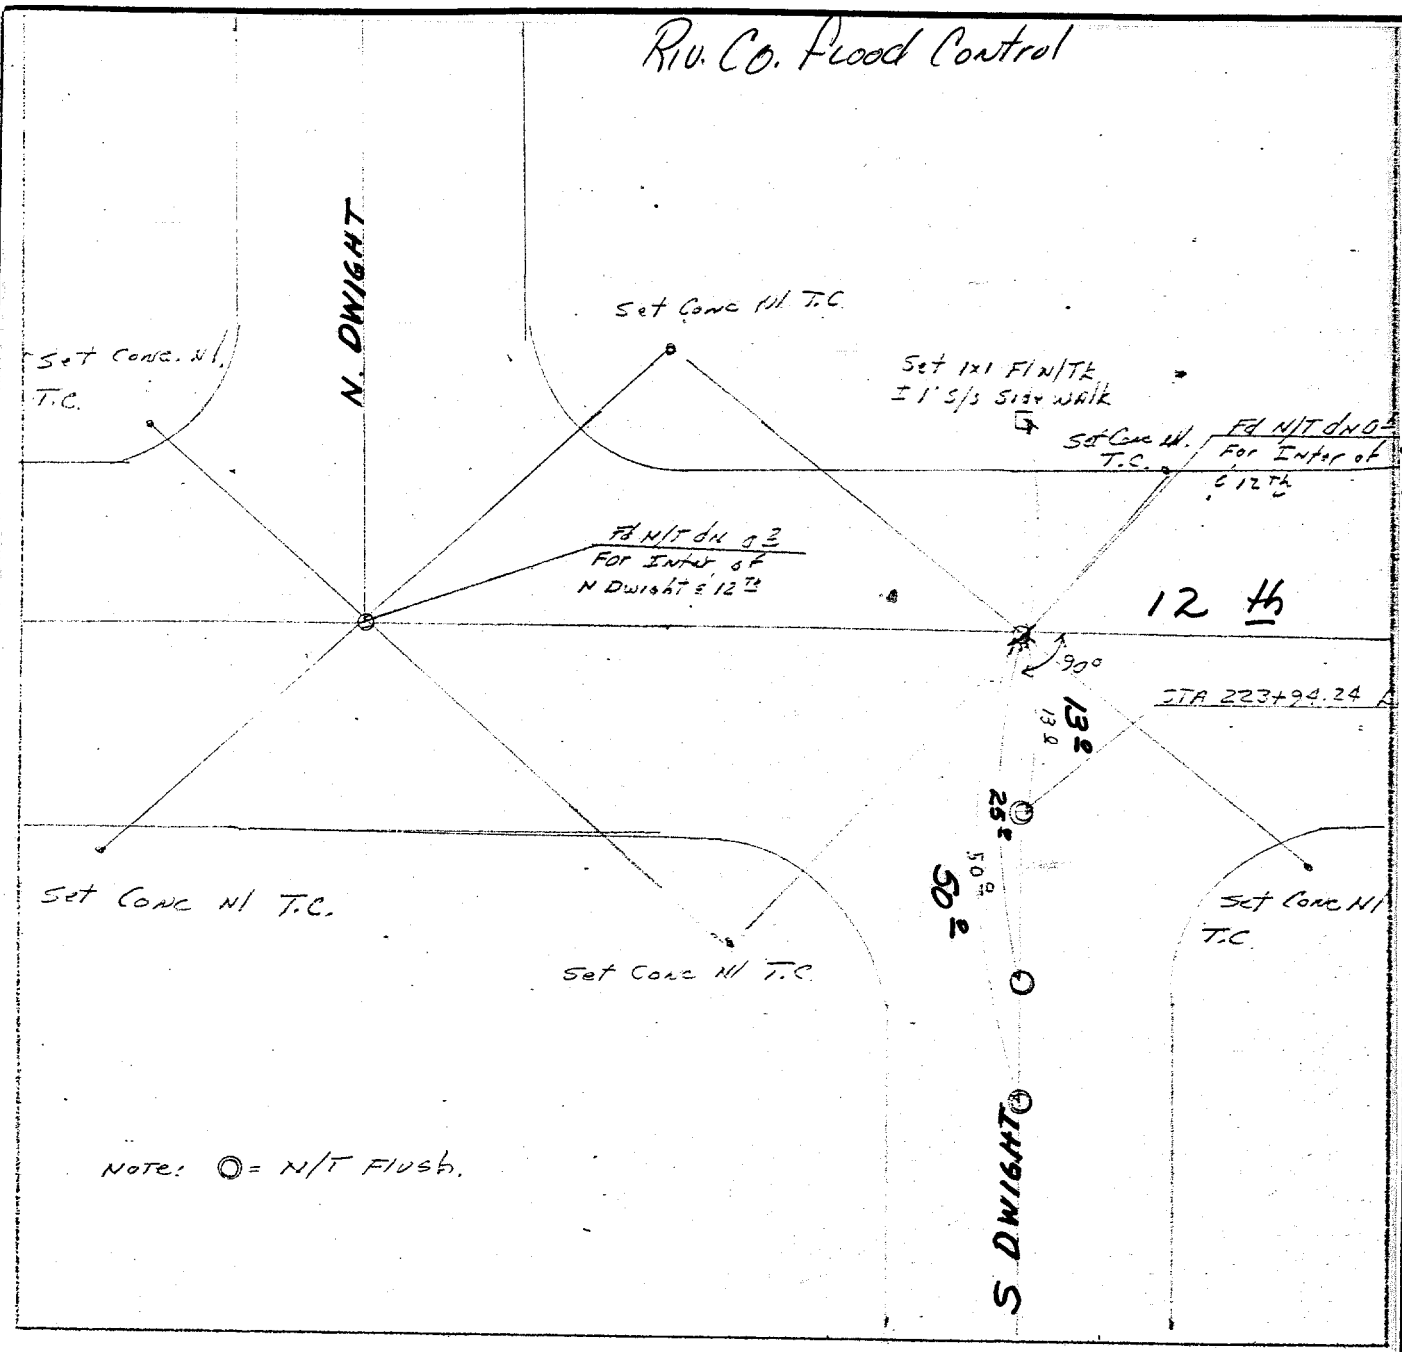 Riv. Co. Flood Control
N. DWIGHT
Set Conc N/ T.C.
Set Conc. N/.
T.C.
Set 1x1 F/N/Tk
± 1' S/s Sidewalk
Set Conc N/.
T.C.
Fd N/T dn 0²
For Inter of
12 Th
Fd N/T dn 0²
For Inter of
N Dwight & 12 Th
12 th
90°
STA 223+94.24
13 0
13 0
25 0
50 0
50 0
Set Conc N/ T.C.
Set Conc N/
T.C.
Set Conc N/ T.C.
NOTE: = N/T Flush.
S DWIGHT